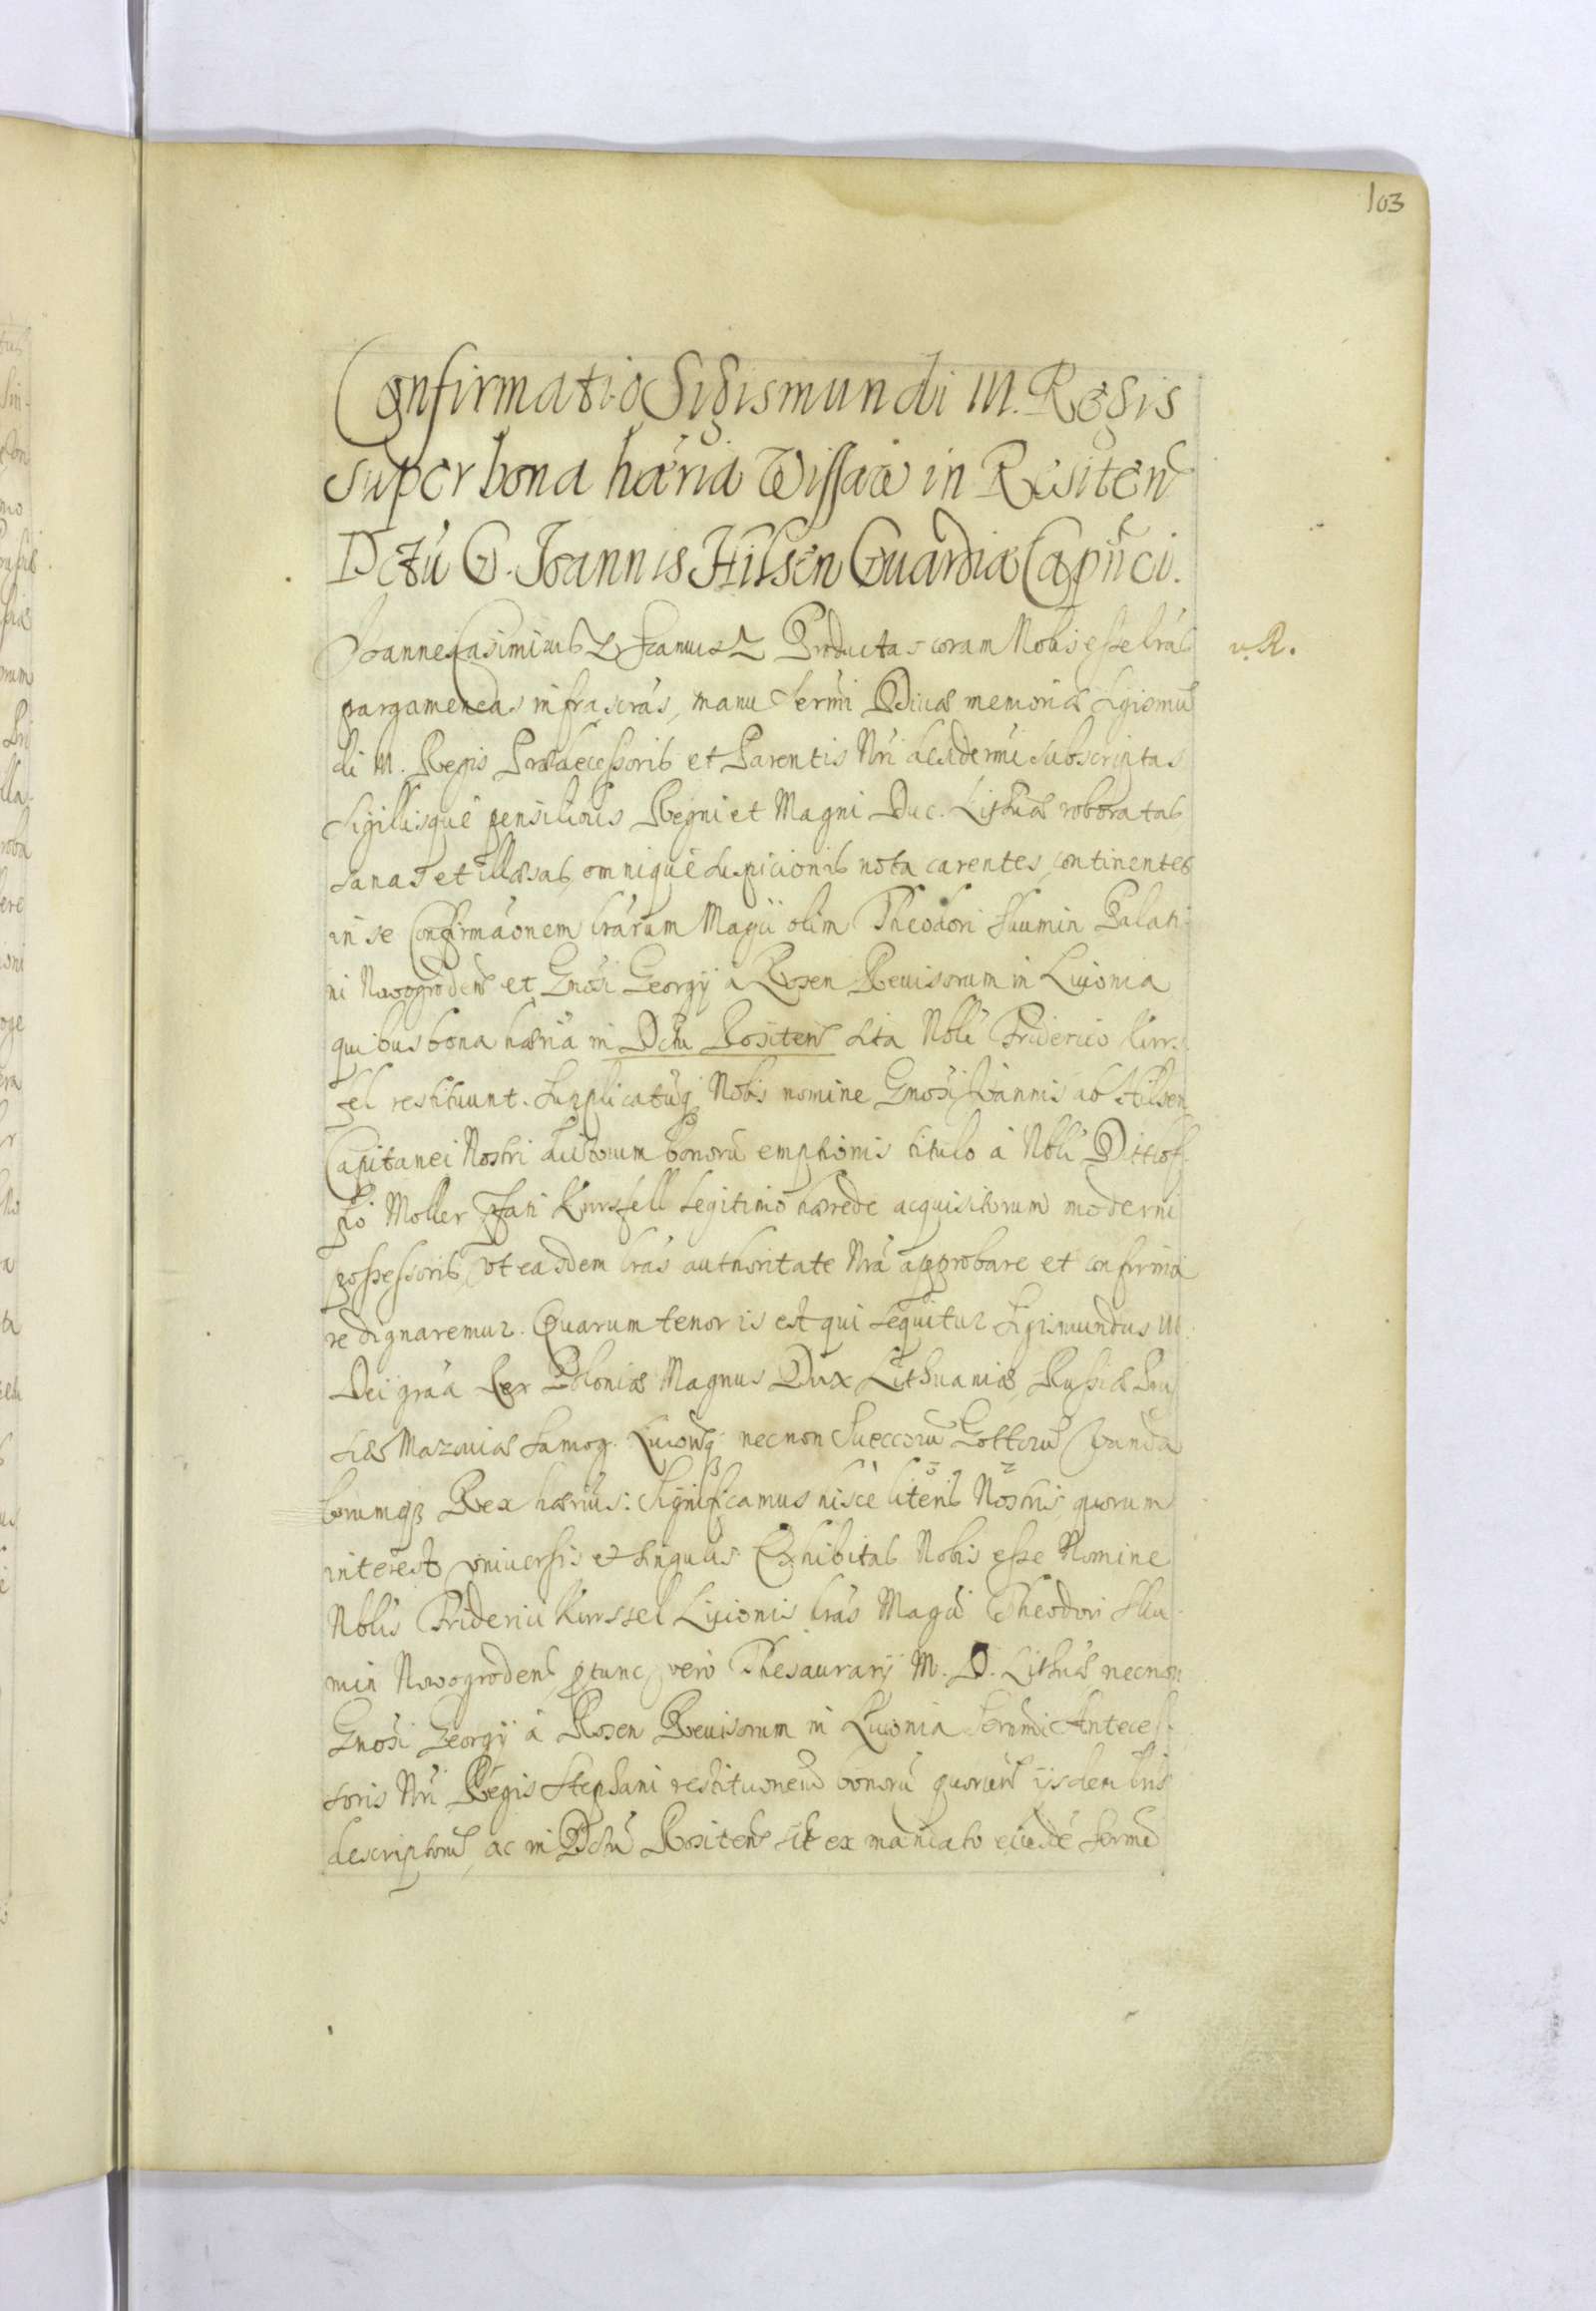 103
Confirmatio Sigismundi III. Regis
super bona hæria Wissaw in Resiten
Dctu G. Joannis Hilsen Guardiæ Capnci.
Joannes Casimirus & Scanus & Productas coram Nobis esse lrás v. R.
pargameneas infrascrás, manu Sermi Divæ memoriæ Sigismu
di III. Regis Prædecessoris et Parentis Nri desidermi subscriptas
Sigillisque pensilibus Regni et Magni Duc. Lithuæ roboratas
sanas et illæsas, omnique suspicionis nota carentes, continentes
in se Confirmaonem lrárum Magci olim Theodori Skumin Palati-
ni Nowogrodens et Gnosi Georgij à Rosen Revisorum in Livonia
quibus bona hæria in Dctu Rositens sita Nobli Friderico Kurs-
sel restituunt. Supplicatuq Nobis nomine Gnosi Joannis ab Hilsen
Capitanei Nostri dictorum bonorū emptionis titulo à Nbli Dittlof-
fo Moller Fati Kurssell legitimo hærede acquisitorum moderni
possessoris, vt easdem lrás authoritate Nrá approbare et confirma
re dignaremur. Quarum tenor is est qui sequitur Sigismundus III.
Dei gráa Rex Poloniæ Magnus Dux Lithuaniæ, Russiæ Pru
siæ Mazouiæ Samog. Liuonq necnon Sueccorū Gottorū Vanda
lorumqz Rex hærius: Significamus hisce literis Nostris, quorum
interest, vniuersis et singulis. Exhibitas Nobis esse Nomine
Nblis Friderici Kurssel Liuonis lrás Magci Theodori Sku
min Nowogrodens, ptunc vero Thesaurarij M. D. Lithuæ necnon
Gnosi Georgij à Rosen Revisorum in Liuonia Sermi Anteces-
soris Nri Regis Stephani restitutionem bonorū quorum ijsdem lris
descriptorū, ac in Dctu Rositens sit ex mandato eiusdé Sermi